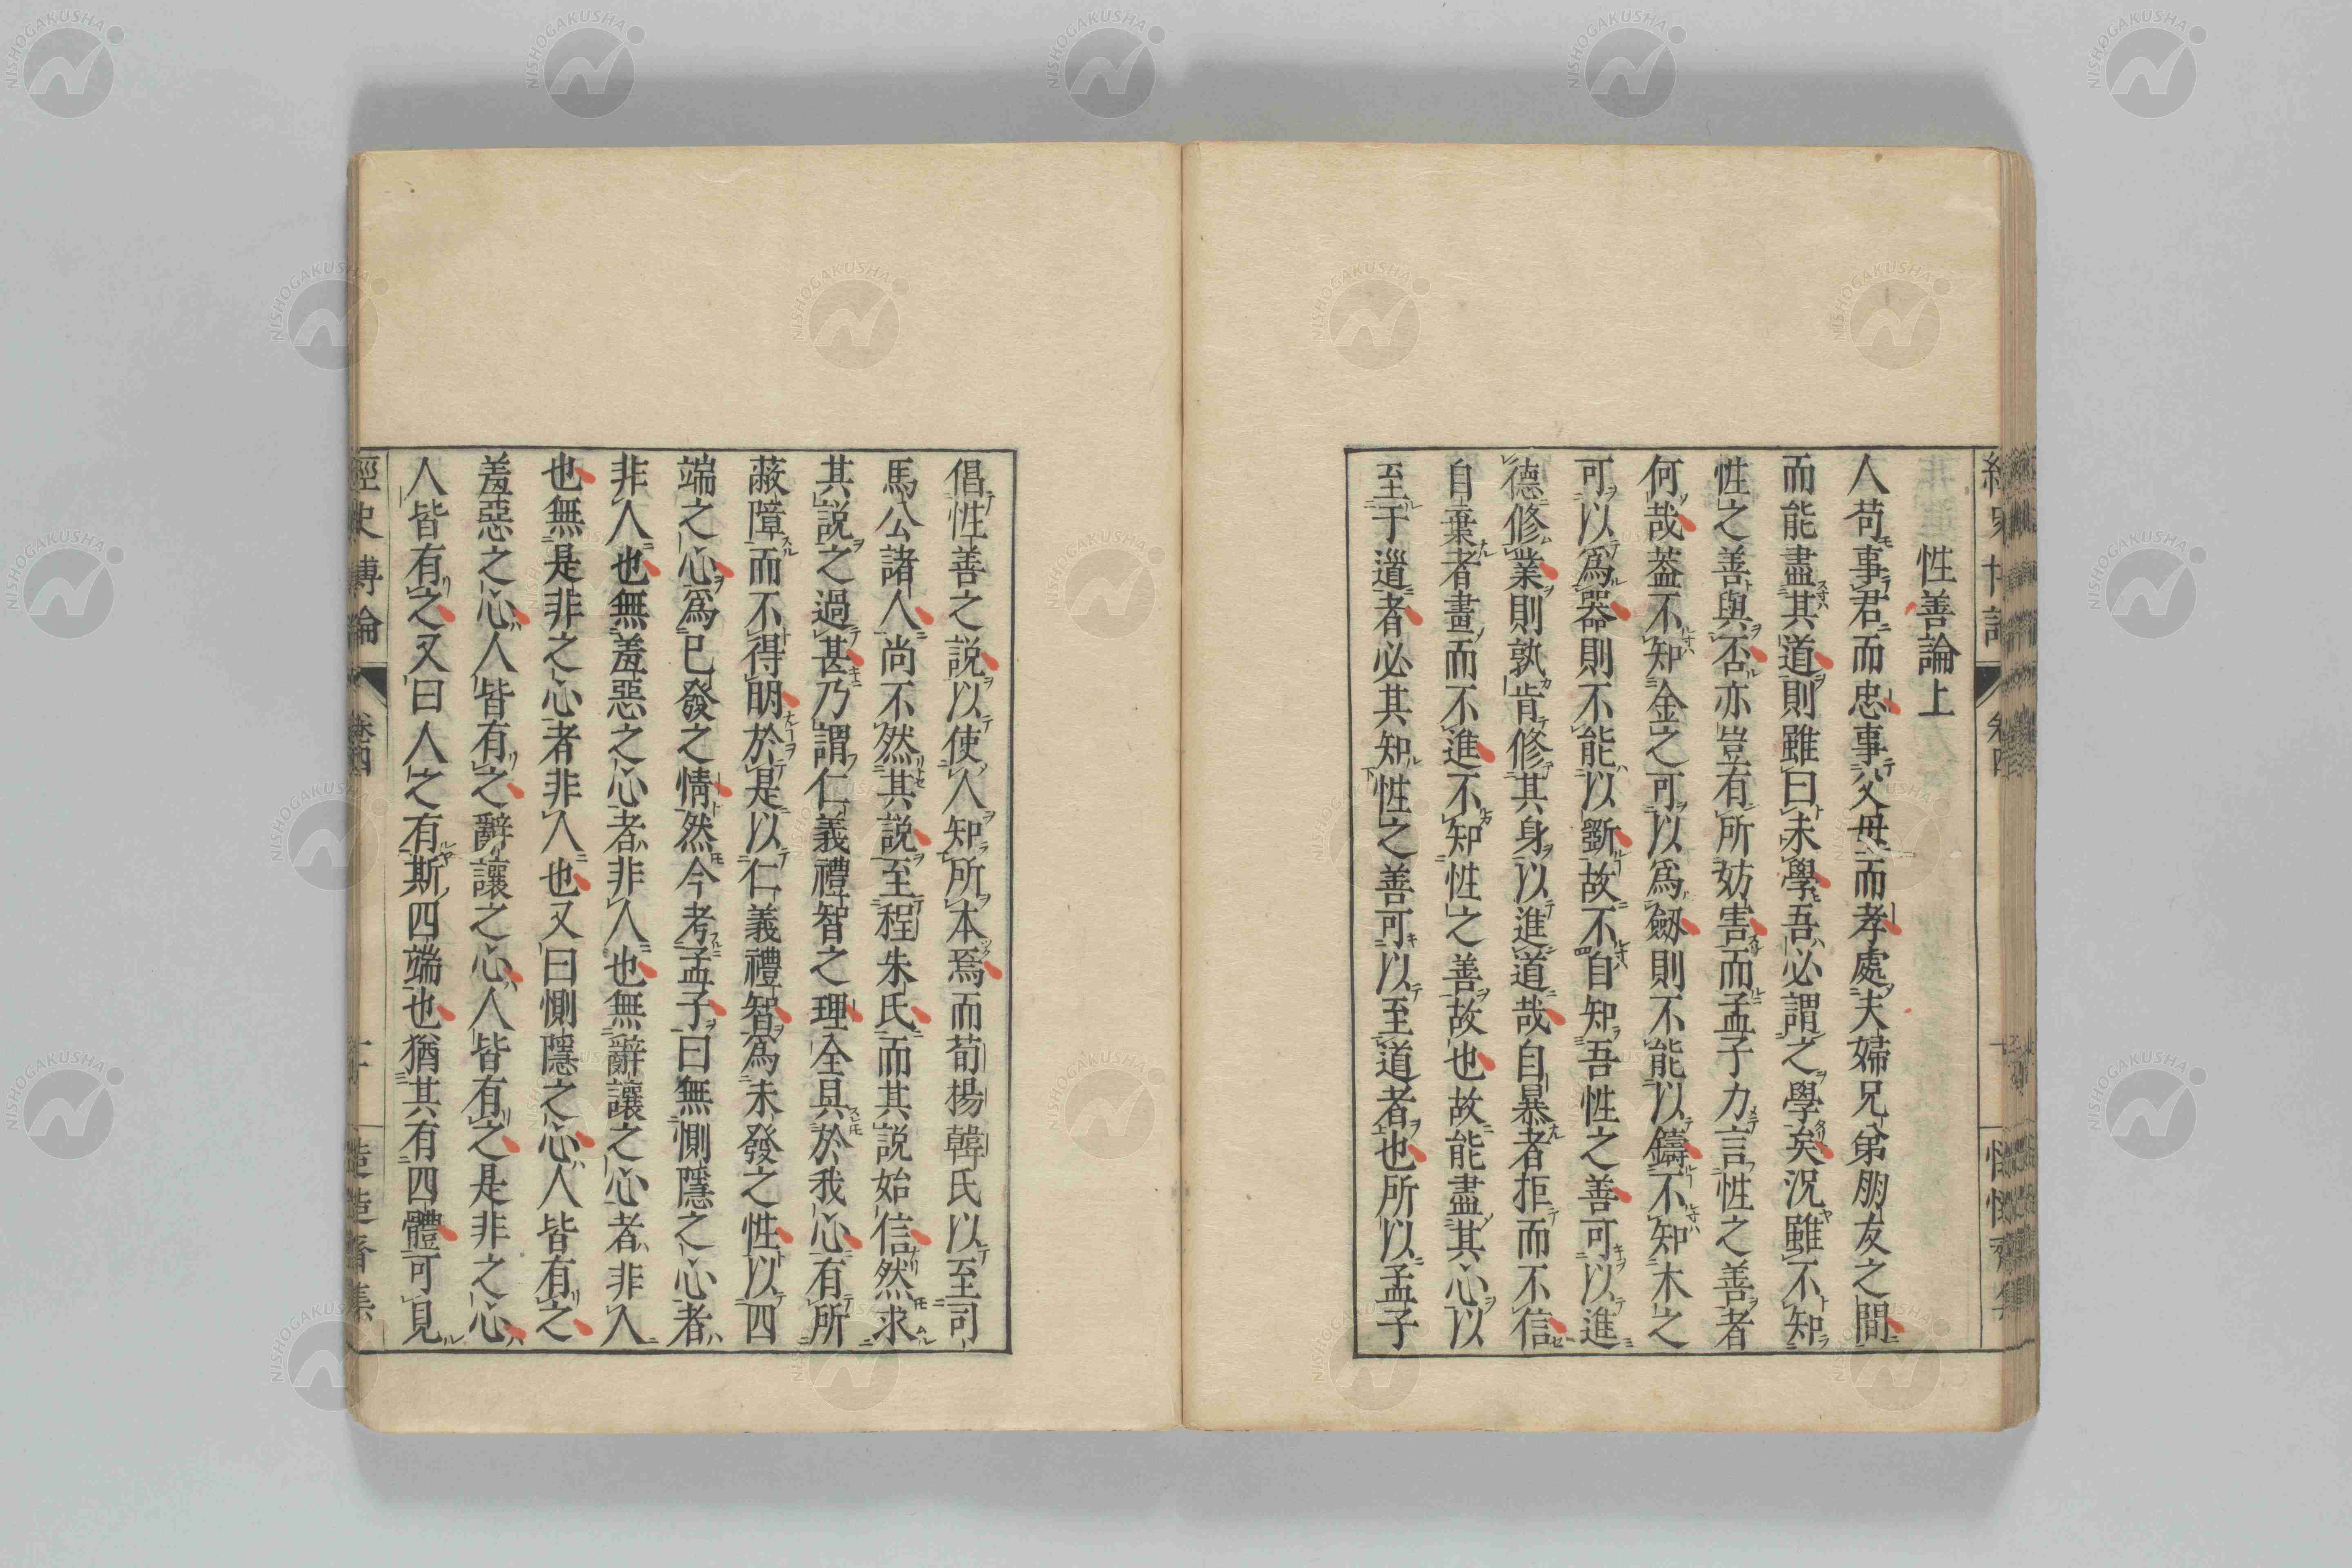 性善論上
人苟事君而忠事父母而孝處夫婦兄弟朋友之間
而能盡其道則雖曰未學吾必謂之學矣況雖不知
性之善與否亦豈有所妨害而孟子力言性之善者
何哉蓋不知金之可以爲劔則不能以鑄不知木之
可以爲器則不能以斵故不自知吾性之善可以進
德修業則孰肯修其身以進道哉自暴者拒而不信
自棄者畫而不進不知性之善故也故能盡其心以
至于道者必其知性之善可以至道者也所以孟子
倡性善之說以使人知所本焉而荀揚韓氏以至司
馬公諸人尚不然其說至程朱氏而其說始信然求
其說之過甚乃謂仁義禮智之理全具於我心有所
蔽障而不得明於是以仁義禮智爲未發之性以四
端之心爲已發之情然今考孟子曰無惻隱之心者
非人也無羞惡之心者非人也無辭讓之心者非人
也無是非之心者非人也又曰惻隱之心人皆有之
羞惡之心人皆有之辭讓之心人皆有之是非之心
人皆有之又曰人之有斯四端也猶其有四體可見
經史博論
卷四
NISHOGAKUSHA